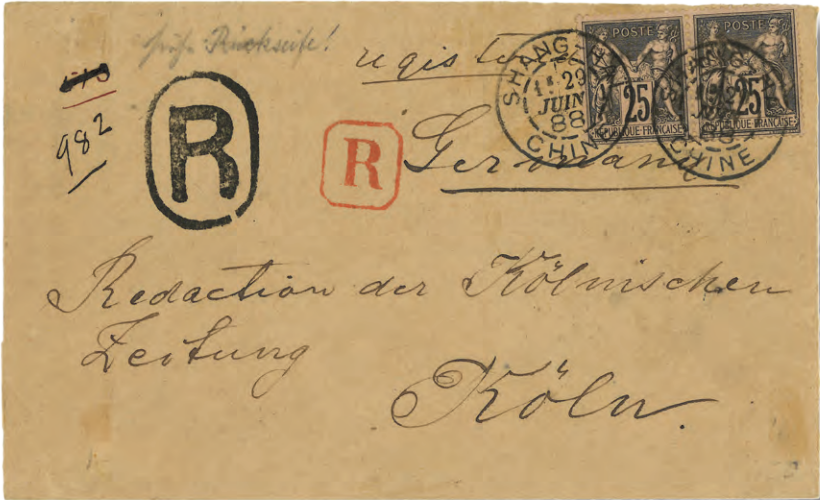 Rückseite!
registered
982
R
R
Germany
POSTE
25
REPUBLIQUE FRANÇAISE
POSTE
25
REPUBLIQUE FRANÇAISE
SHANG-HAI
1E 29
JUIN
88
CHINE
SHANG-HAI
JUIN
88
CHINE
Redaction der Kölnischen
Zeitung
Köln.